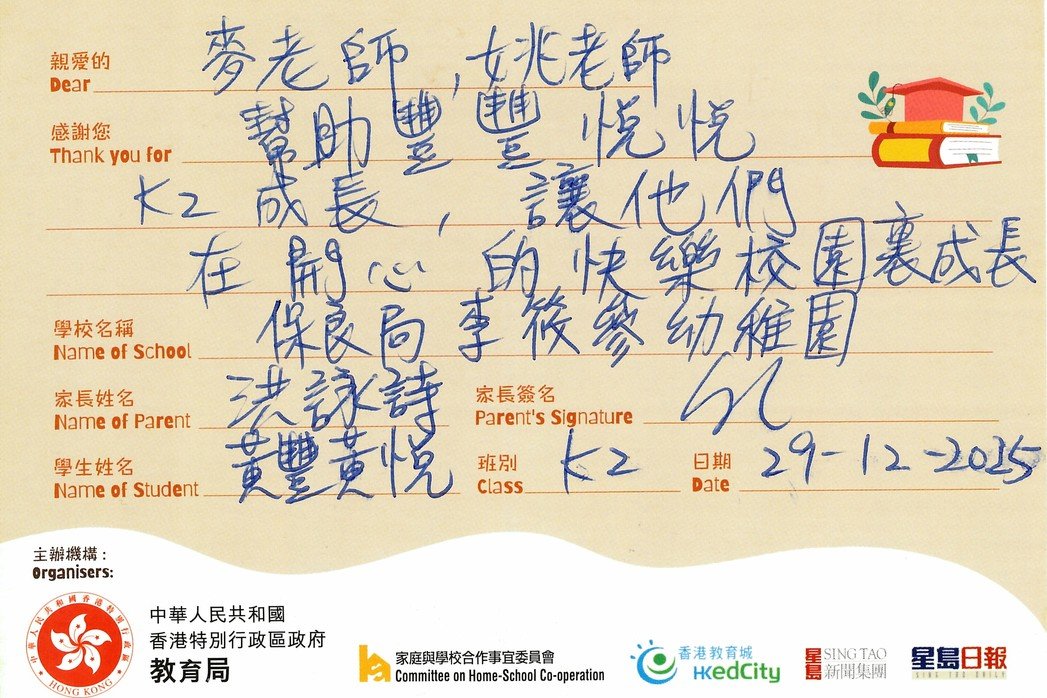 親愛的
Dear 麥老師,姚老師
感謝您
Thank you for 幫助豐豐 悅悅
K2 成長,讓他們
在開心的快樂校園裏成長
學校名稱
Name of School 保良局李筱參幼稚園
家長姓名
Name of Parent 洪詠詩
家長簽名
Parent's Signature
學生姓名
Name of Student 黃豐黃悅
班別
Class K2
日期
Date 29-12-2025
主辦機構:
Organisers:
中華人民共和國香港特別行政區
HONG KONG
中華人民共和國
香港特別行政區政府
教育局
家庭與學校合作事宜委員會
Committee on Home-School Co-operation
香港教育城
HKedCity
星島 SING TAO
新聞集團
星島日報
SING TAO DAILY